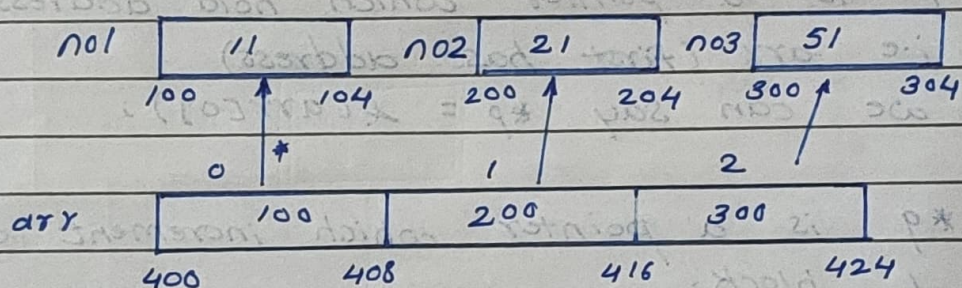 no1 11 no2 21 no3 51
100 104 200 204 300 304
0 * 1 2
arr 100 200 300
400 408 416 424